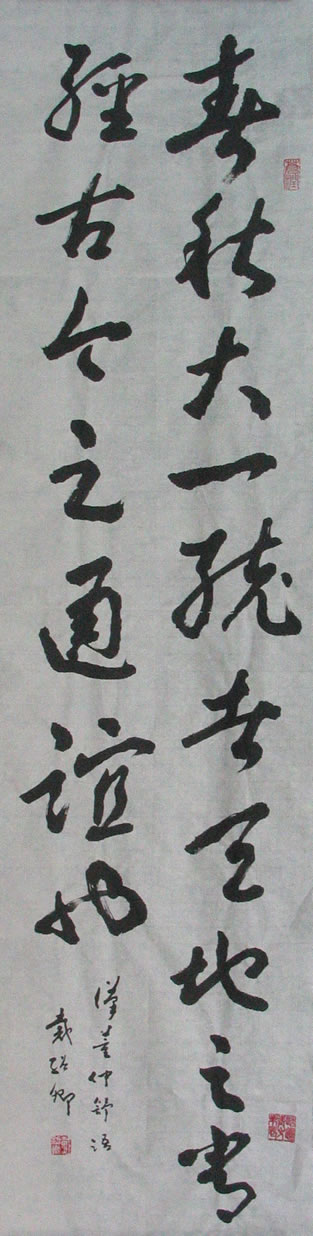 春秋大一统者天地之常
經古今之通誼也
漢董仲舒語
戴